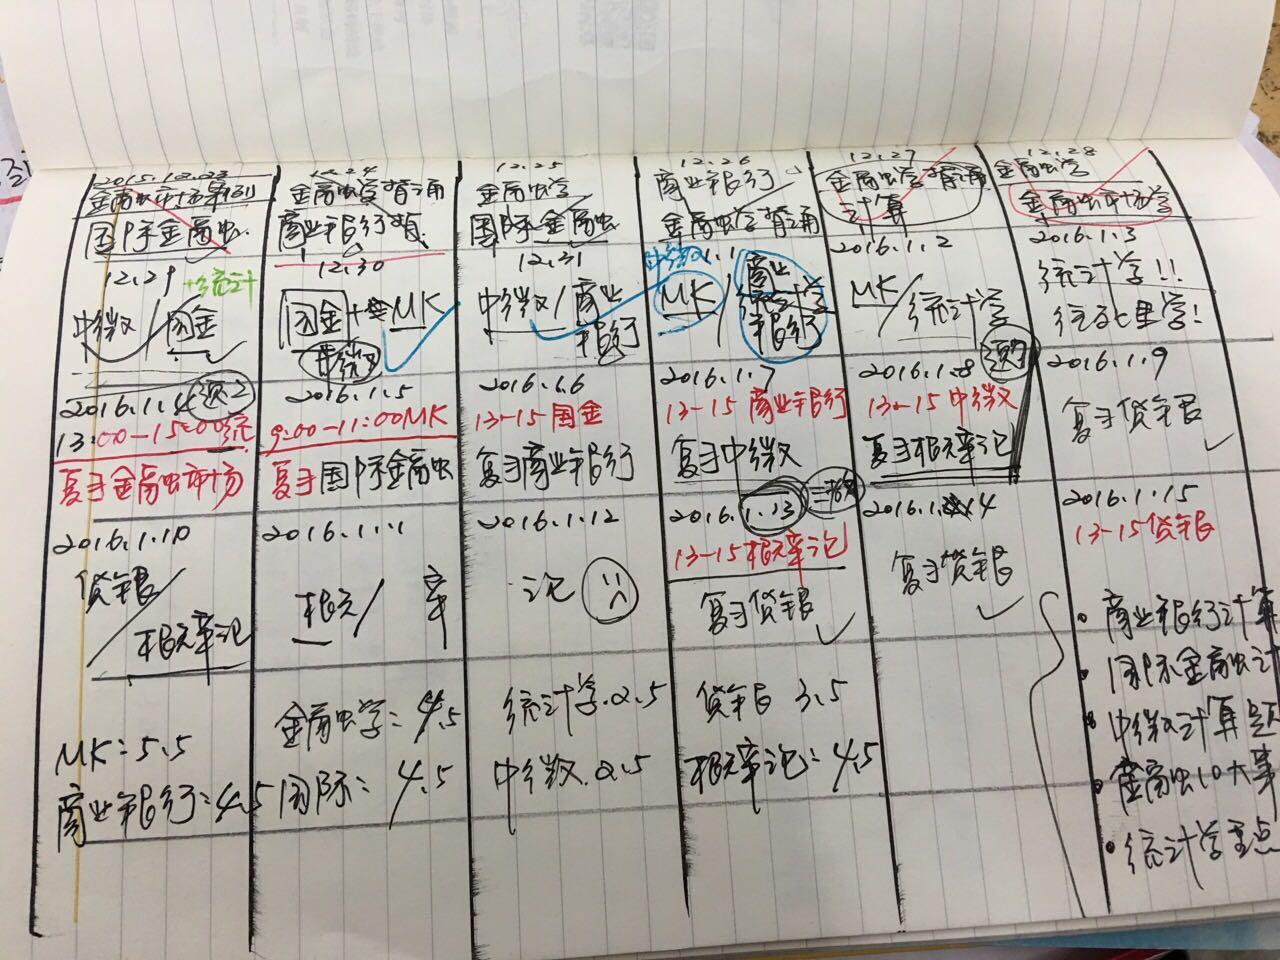 2015.12.23
国际金融
12.24
金融学背诵
商业银行背
12.25
金融学
国际金融
12.26
商业银行
金融学背诵
12.27
金融学背诵
计算
12.28
金融学
金融市场学
12.29
+统计
中微/国金
12.30
国金+MK
12.31
中微/商业
银行
MK/
商业
统计学
银行
2016.1.2
MK/统计学
2016.1.3
统计学!!
管理学!
2016.1.4
13:00-15:00统
复习金融市场
2016.1.5
9:00-11:00MK
复习国际金融
2016.1.6
13-15 国金
复习商业银行
2016.1.7
13-15 商业银行
复习中微
2016.1.8
13-15 中微
复习概率论
2016.1.9
复习货银
2016.1.10
货银/
概率论
2016.1.11
概/ 率
2016.1.12
论
2016.1.13
13-15概率论
复习货银
2016.1.14
复习货银
2016.1.15
13-15货银
MK:5.5
商业银行:4.5
金融学:4.5
国际:4.5
统计学.2.5
中微.2.5
货银 3.5
概率论:4.5
·商业银行计算
·国际金融计
·中微计算题
·金融10大事
·统计学重点